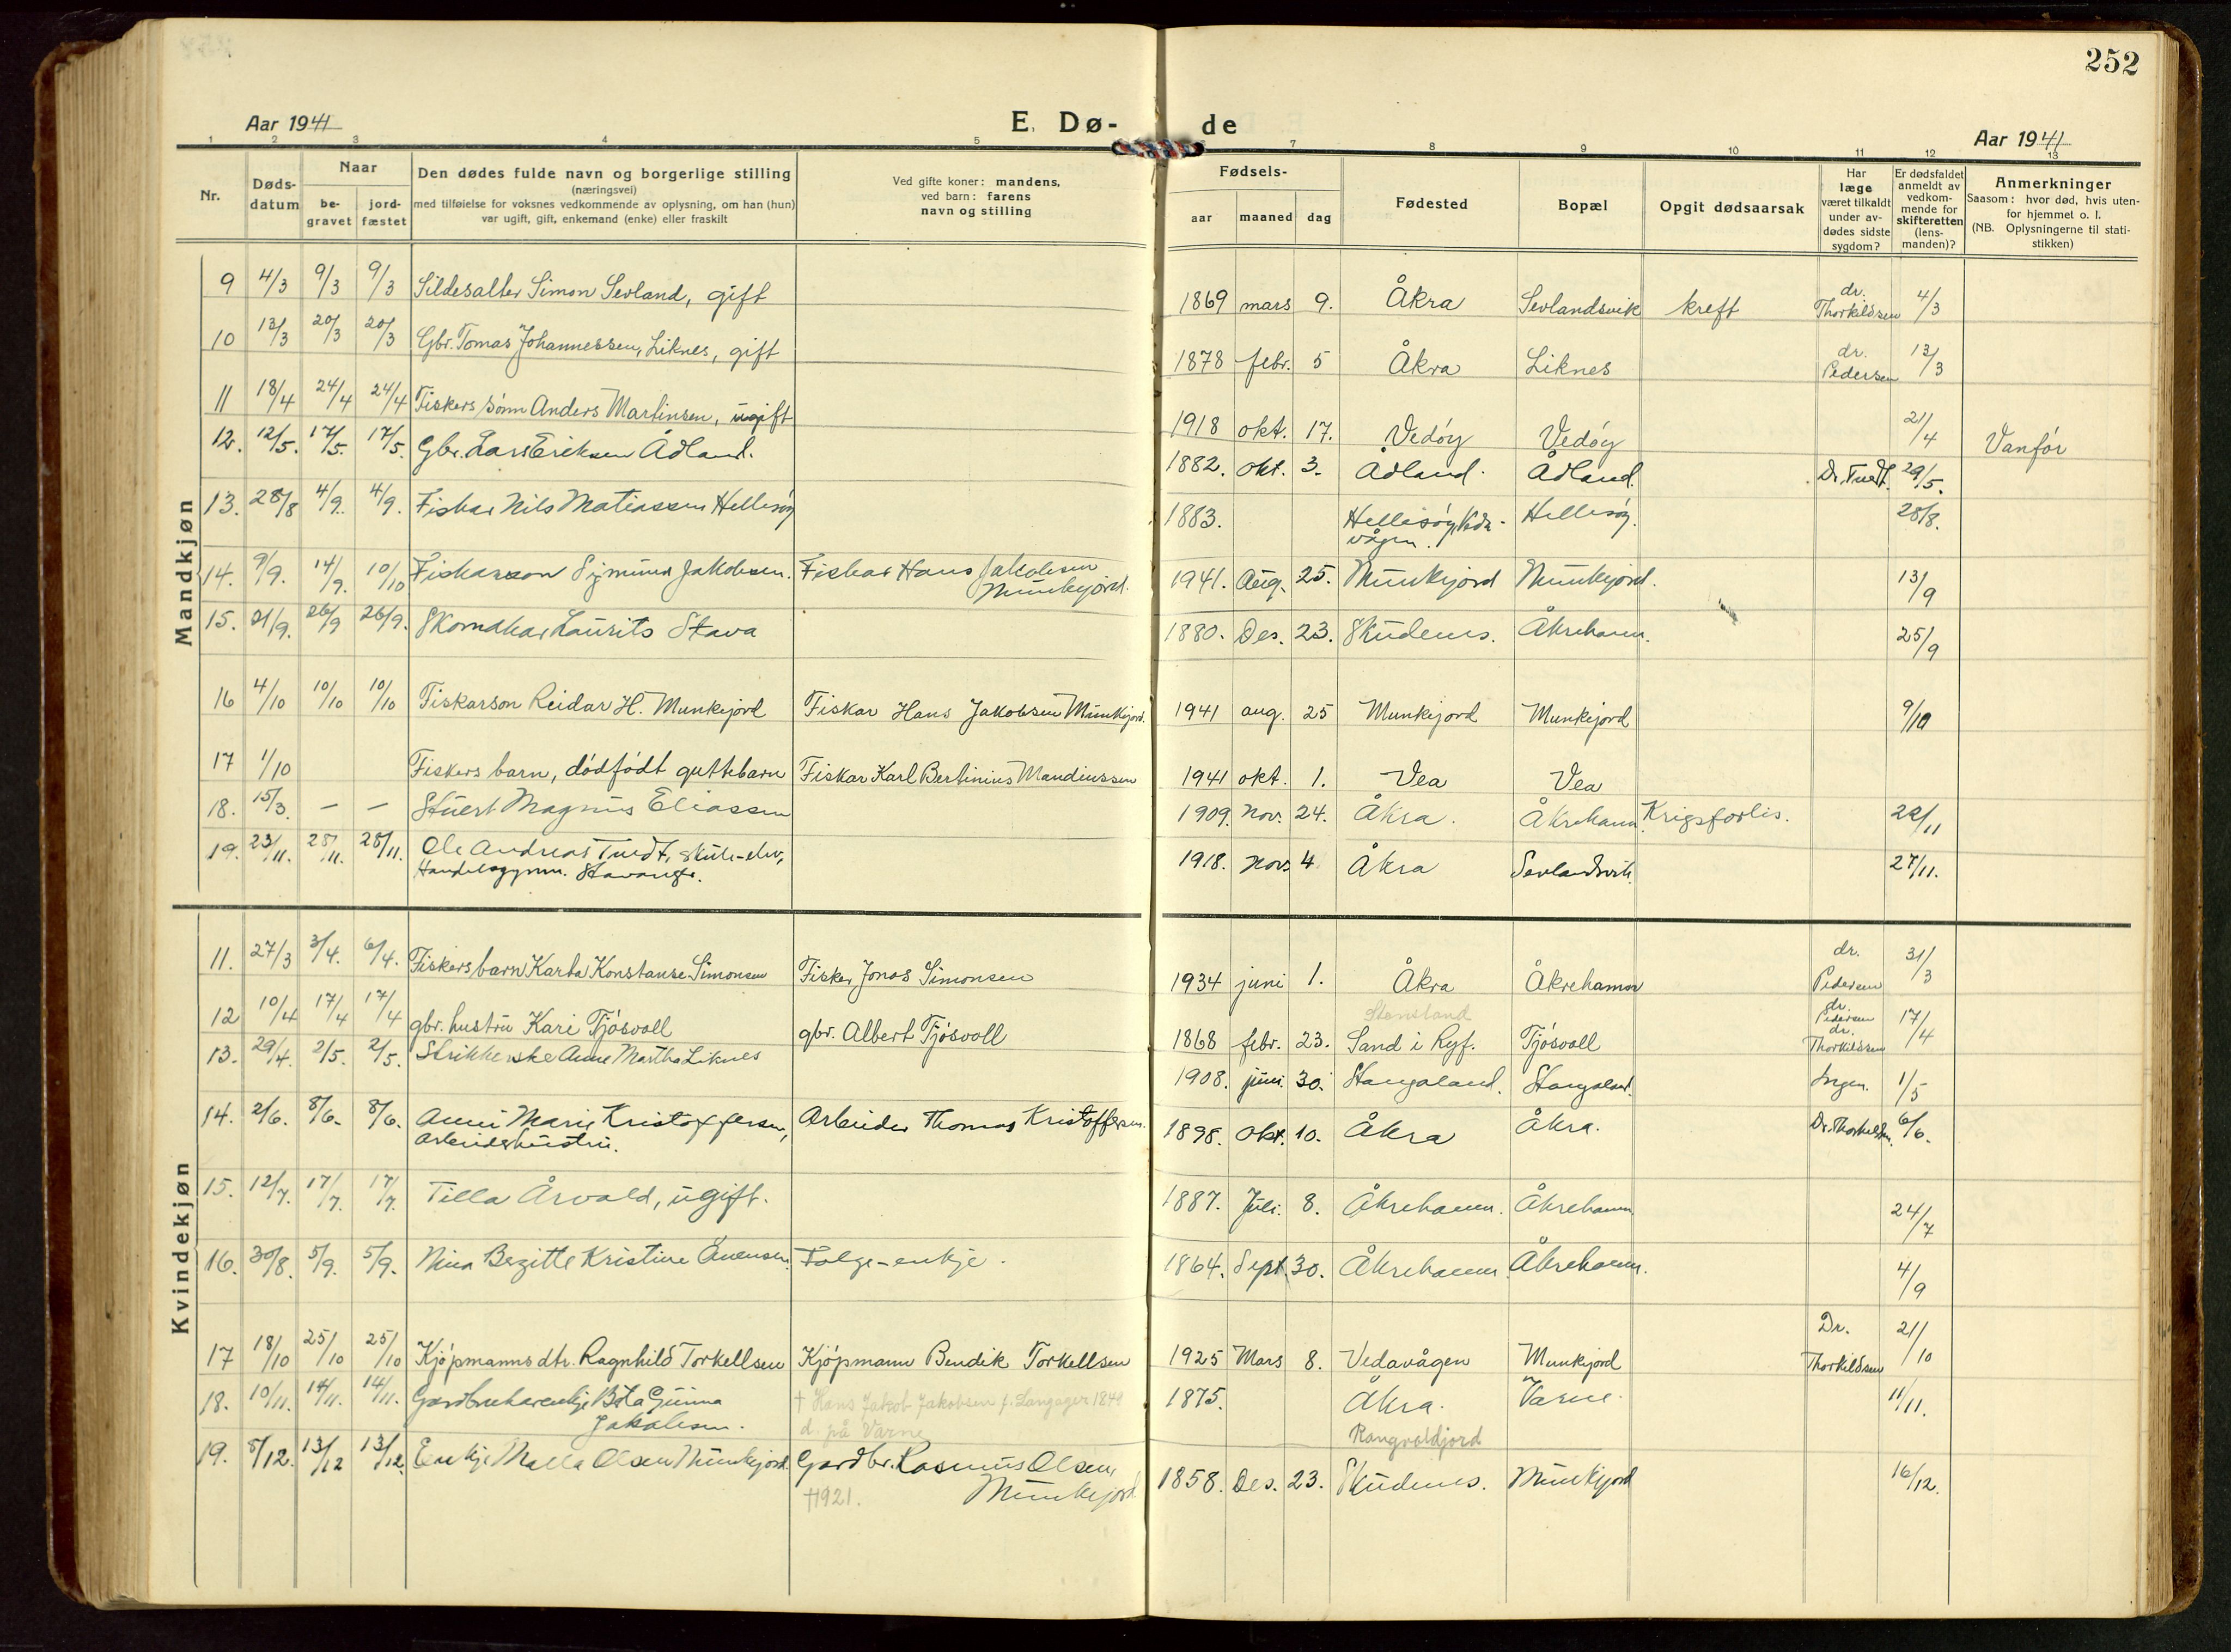 252
Aar 1941
E. Dø-
de
Aar 1941
1 2 3 4 5 7 8 9 10 11 12 13
Nr.
Døds-
datum
Naar
be-
gravet
jord-
fæstet
Den dødes fulde navn og borgerlige stilling
(næringsvei)
med tilføielse for voksnes vedkommende av oplysning, om han (hun)
var ugift, gift, enkemand (enke) eller fraskilt
Ved gifte koner: mandens,
ved barn: farens
navn og stilling
Fødsels-
aar
maaned
dag
Fødested
Bopæl
Opgit dødsaarsak
Har
læge
været tilkaldt
under av-
dødes sidste
sygdom?
Er dødsfaldet
anmeldt av
vedkom-
mende for
skifteretten
(lens-
manden)?
Anmerkninger
Saasom: hvor død, hvis uten-
for hjemmet o. l.
(NB. Oplysningerne til stati-
stikken)
Mandkjøn
9 4/3 9/3 9/3 Sildesalter Simon Sevland, gift 1869 mars 9. Åkra Sevlandsvik kreft dr. Thorkildsen 4/3
10 13/3 20/3 20/3 Gbr. Tomas Johannessen, Liknes, gift 1878 febr. 5 Åkra Liknes dr. Pedersen 13/3
11 18/4 24/4 24/4 Fiskers sønn Anders Martinsen, ugift 1918 okt. 17. Vedøy Vedøy 21/4 Vanfør
12. 12/5. 17/5. 17/5. Gbr. Lars Eriksen Ådland. 1882. okt. 3. Ådland. Ådland. Dr. Tvedt. 29/5.
13. 28/8 4/9. 4/9. Fiskar Nils Matiassen Hellisøy 1883. Hellisøy, Veda-
vågen. Hellisøy. 28/8.
14. 9/9. 14/9. 10/10 Fiskarson Sigmund Jakobsen. Fiskar Hans Jakobsen
Munkejord. 1941. Aug. 25. Munkejord Munkejord. 13/9
15. 21/9. 26/9 26/9. Skomakar Laurits Stava 1880. Des. 23. Skudenes. Åkrehamn. 25/9
16 4/10 10/10 10/10 Fiskarson Reidar H. Munkejord Fiskar Hans Jakobsen Munkejord. 1941 aug. 25 Munkejord Munkejord 9/10
17 1/10 Fiskers barn, dødfødt guttebarn Fiskar Karl Bertinius Mandiussen 1941 okt. 1. Vea Vea
18. 15/3. — — Stuert Magnus Eliassen 1909. Nov. 24. Åkra. Åkrehamn Krigsforlis. 29/11
19. 23/11. 28/11. 28/11. Ole Andreas Tvedt, skule-elev,
Handelsgymn. Stavanger. 1918. Nov. 4 Åkra Sevlandsvik. 27/11.
Kvindekjøn
11. 27/3 3/4. 6/4. Fiskers barn Karla Konstanse Simonsen Fisker Jonas Simonsen 1934 juni 1. Åkra Åkrehamn dr. Pedersen 31/3
12 10/4 17/4 17/4 gbr. hustru Kari Tjøsvoll gbr. Albert Tjøsvoll 1868 febr. 23. Sand i Ryf. Tjøsvoll dr. Pedersen dr. Thorkildsen 17/4
13. 29/4. 2/5. 2/5. Strikkerske Anne Martha Liknes 1908. juni. 30. Stangaland. Stangaland. Ingen. 1/5
14. 2/6. 8/6. 8/6. Anni Marie Kristoffersen,
Arbeiderhustru. Arbeider Thomas Kristoffersen. 1898. Okt. 10. Åkra Åkra. Dr. Thorkildsen. 6/6.
15. 12/7. 17/7. 17/7. Tilla Årvald, ugift. 1887. Juli. 8. Åkrehamn. Åkrehamn. 24/7
16. 30/8. 5/9. 5/9. Nina Bergitte Kristine Enensen. Folge-enkje. 1864. Sept. 30. Åkrehamn Åkrehamn. 4/9
17 18/10 25/10 25/10 Kjøpmanns dtr. Ragnhild Torkellsen Kjøpmann Bendik Torkellsen 1925 Mars 8. Vedavågen Munkejord Dr. Thorkildsen 21/10
18. 10/11. 14/11. 14/11. Gardbrukarenkje Berta Gunna
Jakobsen. † Hans Jakob Jakobsen f. Langager 1849
d. på Varne 1875. Åkra. Varne. 11/11.
Rangvaldjord
19. 8/12. 13/12 13/12. Enkje Malla Olsen Munkejord. Gardbr. Rasmus Olsen,
†1921. Munkejord. 1858. Des. 23. Skudenes. Munkejord 16/12.